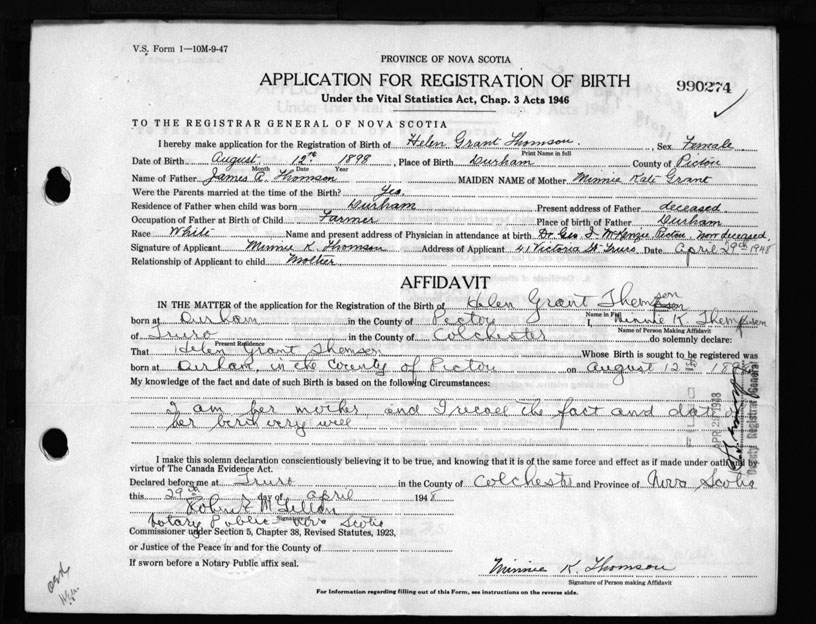 V.S. Form 1—10M-9-47
PROVINCE OF NOVA SCOTIA
APPLICATION FOR REGISTRATION OF BIRTH
990274
Under the Vital Statistics Act, Chap. 3 Acts 1946
TO THE REGISTRAR GENERAL OF NOVA SCOTIA
I hereby make application for the Registration of Birth of Helen Grant Thomson, Sex Female
Print Name in full
Date of Birth August 12th 1898, Place of Birth Durham County of Pictou
Month Date Year
Name of Father James A. Thomson MAIDEN NAME of Mother Minnie Kate Grant
Were the Parents married at the time of the Birth? Yes.
Residence of Father when child was born Durham Present address of Father deceased
Occupation of Father at Birth of Child Farmer Place of birth of Father Durham
Race White Name and present address of Physician in attendance at birth Dr. Geo. I. McKenzie, Pictou, Now deceased
Signature of Applicant Minnie K. Thomson Address of Applicant 41 Victoria St. Truro, Date April 29th 1948
Relationship of Applicant to child Mother
AFFIDAVIT
IN THE MATTER of the application for the Registration of the Birth of Helen Grant Thomson
Name in Full
born at Durham in the County of Pictou I, Minnie K. Thompson
Name of Person Making Affidavit
of Truro in the County of Colchester do solemnly declare:
Present Residence
That Helen Grant Thomson Whose Birth is sought to be registered was
born at Durham, in the County of Pictou on August 12th 1898
My knowledge of the fact and date of such Birth is based on the following Circumstances:
I am her mother, and I recall the fact and date of
her birth very well
APR 29 1948
Deputy Registrar General
I make this solemn declaration conscientiously believing it to be true, and knowing that it is of the same force and effect as if made under oath and by
virtue of The Canada Evidence Act.
Declared before me at Truro in the County of Colchester and Province of Nova Scotia
this 29th day of April 1948
Robert McLellan
Signature
Notary Public Nova Scotia
Commissioner under Section 5, Chapter 38, Revised Statutes, 1923,
or Justice of the Peace in and for the County of
If sworn before a Notary Public affix seal.
Minnie K. Thomson
Signature of Person making Affidavit
For Information regarding filling out of this Form, see instructions on the reverse side.